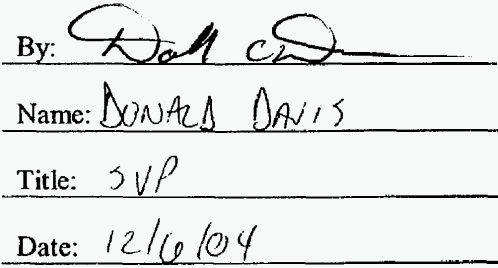 By:
Name: DONALD DAVIS
Title: SVP
Date: 12/6/04